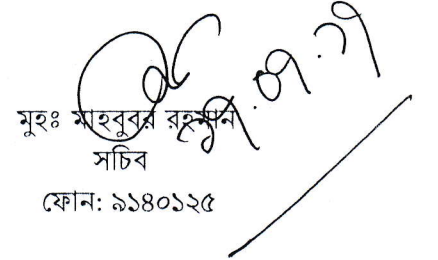 মুহঃ মাহবুবর রহমান
সচিব
ফোন: ৯১৪০১২৫